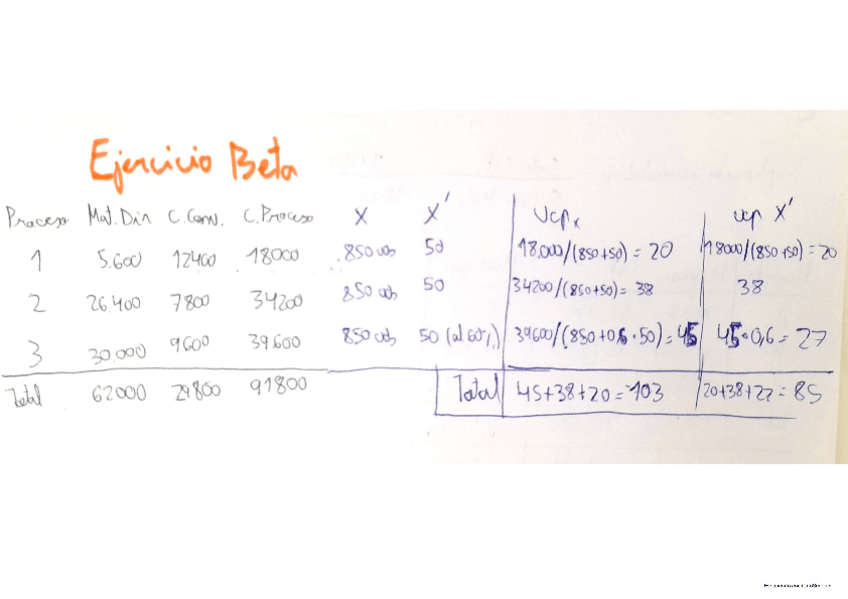 Ejercicio Beta
Proceso Mat.Dir C.Conv. C.Proceso X X' Ucpx ucp X'
1 5.600 12400 18000 850 uds 50 18.000/(850+50) = 20 18000/(850+50) = 20
2 26.400 7800 34200 850 uds 50 34200/(850+50) = 38 38
3 30.000 9600 39.600 850 uds 50 (al 60%) 39600/(850+0,6·50) = 45 45·0,6 = 27
Total 62000 29800 91800 Total 45+38+20 = 103 20+38+27 = 85